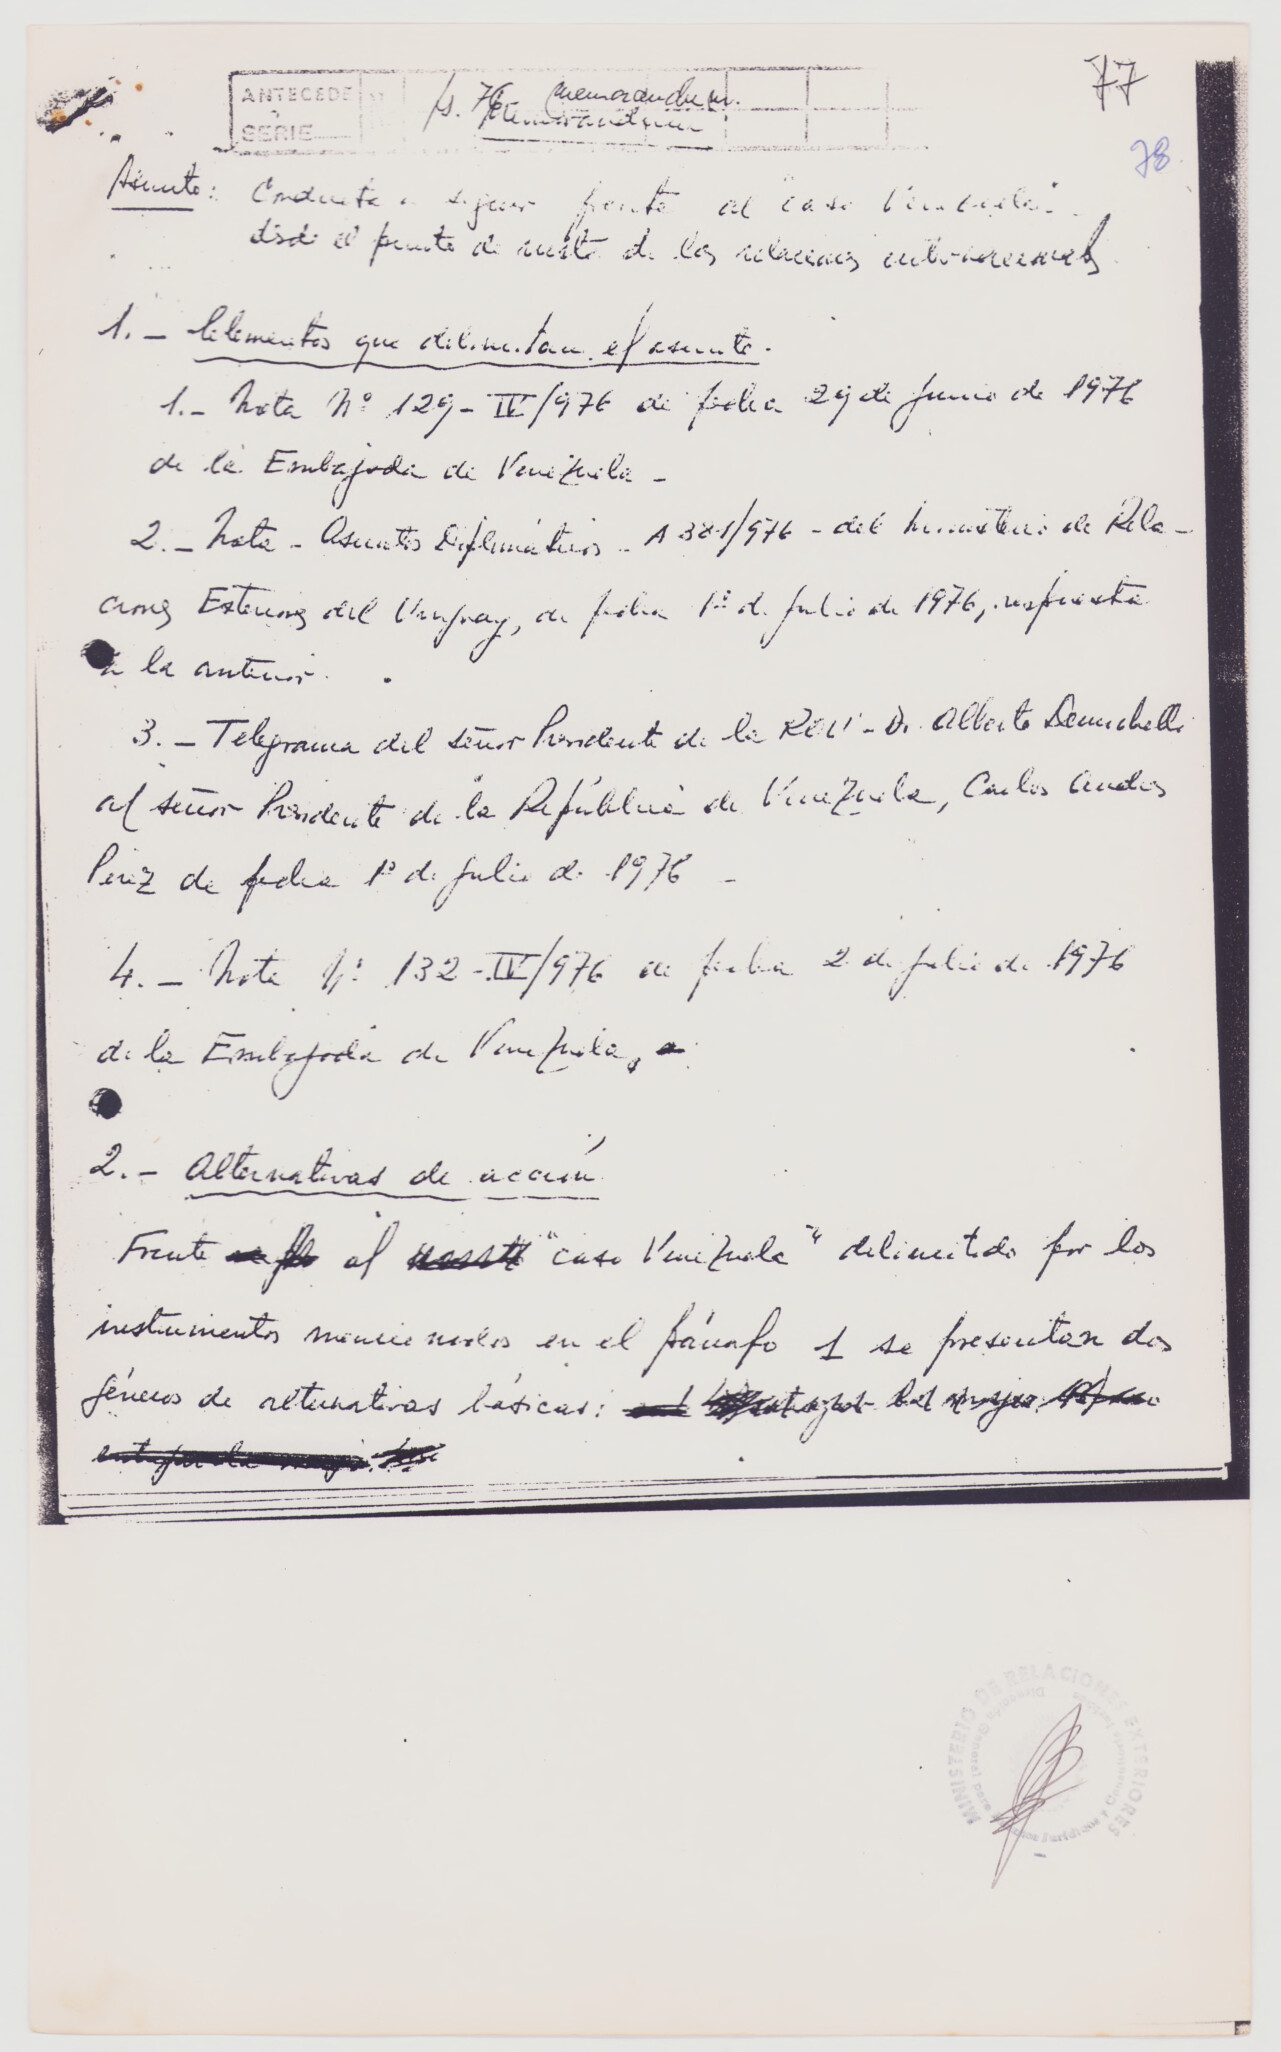 77
78
ANTECEDE
SERIE
fs. 76 memorandum.
Memorandum
Asunto: Conducta a seguir frente al "caso Venezuela"
desde el punto de vista de las relaciones internacionales
1.- Elementos que delimitan el asunto.
1.- Nota Nº 129-IV/976 de fecha 29 de Junio de 1976
de la Embajada de Venezuela -
2.- Nota - Asuntos Diplomáticos - A 381/976 - del Ministerio de Rela-
ciones Exteriores del Uruguay, de fecha 1º de Julio de 1976, respuesta
a la anterior.
3.- Telegrama del señor Presidente de la ROU - Dr Alberto Demichelli
al señor Presidente de la República de Venezuela, Carlos Andres
Pérez de fecha 1º de Julio de 1976 -
4.- Nota Nº 132-IV/976 de fecha 2 de julio de 1976
de la Embajada de Venezuela,
2.- Alternativas de acción
Frente al "caso Venezuela" delimitado por los
instrumentos mencionados en el párrafo 1 se presentan dos
géneros de alternativas básicas:
MINISTERIO DE RELACIONES EXTERIORES
Dirección General para Asuntos Jurídicos y